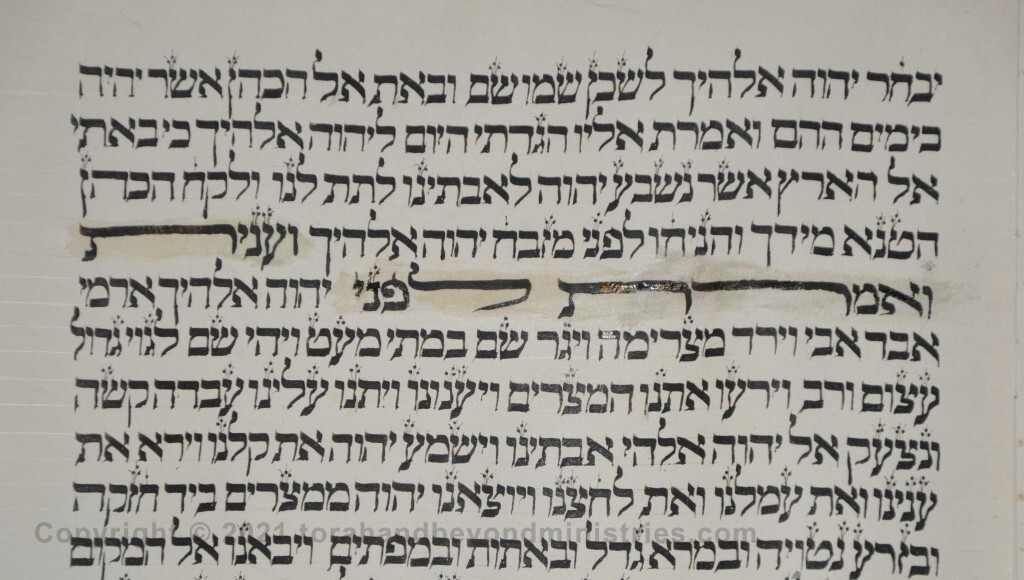 יבחר יהוה אלהיך לשכן שמו שם ובאת אל הכהן אשר יהיה
בימים ההם ואמרת אליו הגדתי היום ליהוה אלהיך כי באתי
אל הארץ אשר נשבע יהוה לאבתינו לתת לנו ולקח הכהן
הטנא מידך והניחו לפני מזבח יהוה אלהיך וענית
ואמרת לפני יהוה אלהיך ארמי
אבד אבי וירד מצרימה ויגר שם במתי מעט ויהי שם לגוי גדול
עצום ורב וירעו אתנו המצרים ויענונו ויתנו עלינו עבדה קשה
ונצעק אל יהוה אלהי אבתינו וישמע יהוה את קלנו וירא את
ענינו ואת עמלנו ואת לחצנו ויוצאנו יהוה ממצרים ביד חזקה
Copyright © 2021 torahandbeyondministries.com
ובזרע נטויה ובמרא גדל ובאתות ובמפתים ויבאנו אל המקום